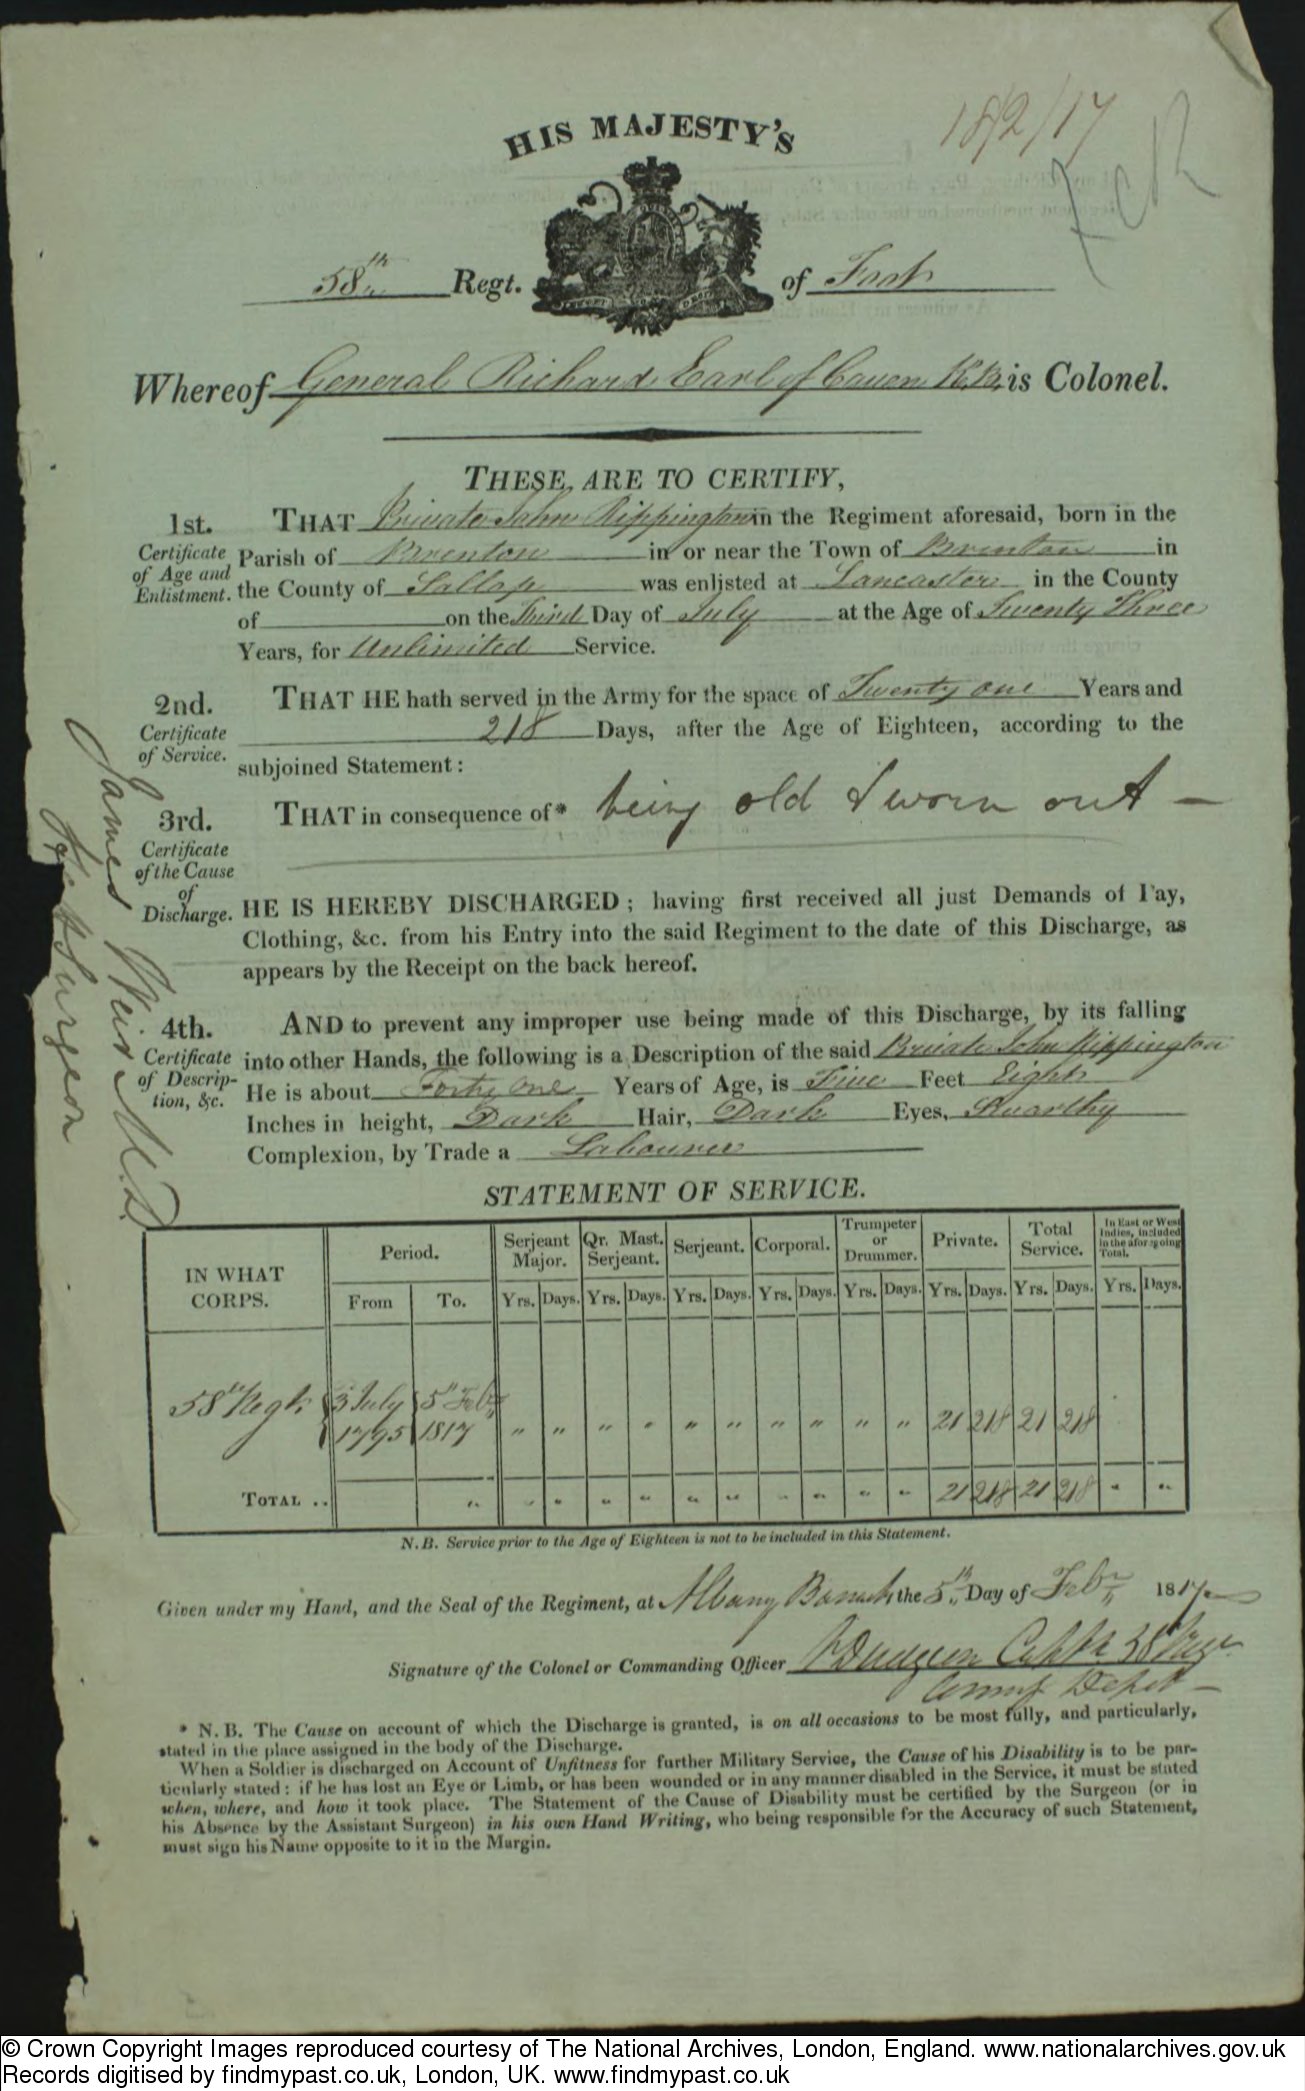 18/2/17
HIS MAJESTY'S
58th Regt. of Foot
Whereof General Richard Earl of Cavan K.B. is Colonel.
THESE ARE TO CERTIFY,
1st.
Certificate
of Age and
Enlistment.
THAT Private John Rippington in the Regiment aforesaid, born in the
Parish of Brenton in or near the Town of Brenton in
the County of Sallop was enlisted at Lancaster in the County
of on the Third Day of July at the Age of Twenty Three
Years, for Unlimited Service.
2nd.
Certificate
of Service.
THAT HE hath served in the Army for the space of Twenty one Years and
218 Days, after the Age of Eighteen, according to the
subjoined Statement:
3rd.
Certificate
of the Cause
of
Discharge.
THAT in consequence of* being old & worn out —
HE IS HEREBY DISCHARGED; having first received all just Demands of Pay,
Clothing, &c. from his Entry into the said Regiment to the date of this Discharge, as
appears by the Receipt on the back hereof.
James Weir M.D.
Surgeon
4th.
Certificate
of Descrip-
tion, &c.
AND to prevent any improper use being made of this Discharge, by its falling
into other Hands, the following is a Description of the said Private John Rippington
He is about Forty one Years of Age, is Five Feet Eight
Inches in height, Dark Hair, Dark Eyes, Swarthy
Complexion, by Trade a Labourer
STATEMENT OF SERVICE.
IN WHAT CORPS. Period. From To. Serjeant Major. Qr. Mast. Serjeant. Serjeant. Corporal. Trumpeter or Drummer. Private. Total Service. In East or West Indies, included in the aforegoing Total.
Yrs. Days. Yrs. Days. Yrs. Days. Yrs. Days. Yrs. Days. Yrs. Days. Yrs. Days. Yrs. Days.
58th Regt 3 July 1795 5th Feby 1817 " " " " " " " " " " 21 218 21 218
TOTAL .. " " " " " " " " " " " 21 218 21 218 " "
N.B. Service prior to the Age of Eighteen is not to be included in this Statement.
Given under my Hand, and the Seal of the Regiment, at Albany Barracks the 5th Day of Feby 1817
Signature of the Colonel or Commanding Officer Dudgeon Captn 58 Regt
Comg Depot —
* N.B. The Cause on account of which the Discharge is granted, is on all occasions to be most fully, and particularly,
stated in the place assigned in the body of the Discharge.
When a Soldier is discharged on Account of Unfitness for further Military Service, the Cause of his Disability is to be par-
ticularly stated: if he has lost an Eye or Limb, or has been wounded or in any manner disabled in the Service, it must be stated
when, where, and how it took place. The Statement of the Cause of Disability must be certified by the Surgeon (or in
his Absence by the Assistant Surgeon) in his own Hand Writing, who being responsible for the Accuracy of such Statement,
must sign his Name opposite to it in the Margin.
© Crown Copyright Images reproduced courtesy of The National Archives, London, England. www.nationalarchives.gov.uk
Records digitised by findmypast.co.uk, London, UK. www.findmypast.co.uk